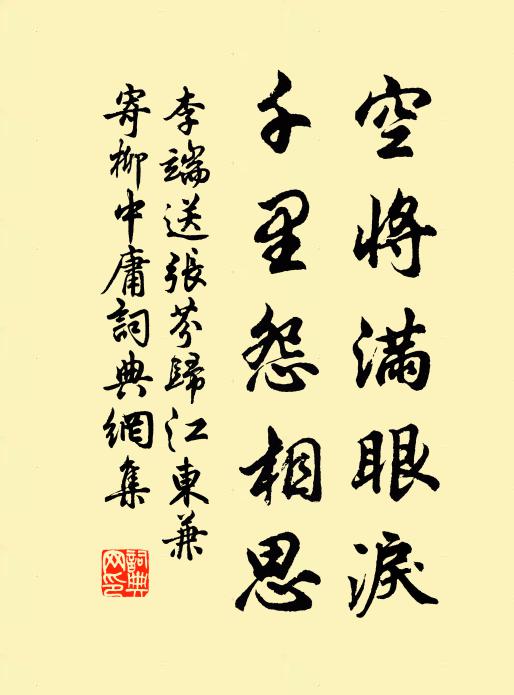 空將滿眼淚
千里怨相思
李端送張芬歸江東兼
寄柳中庸詞典網集
詞典
网印